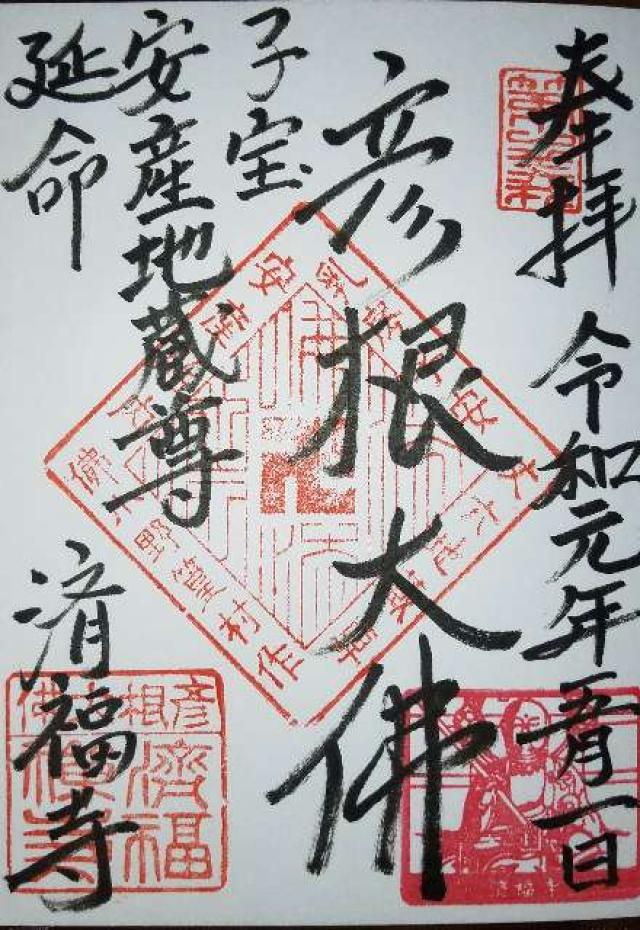 奉拝
令和元年五月一日
彦根大佛
子宝
安産地蔵尊
延命
済福寺
彦根大佛
濟福禅寺